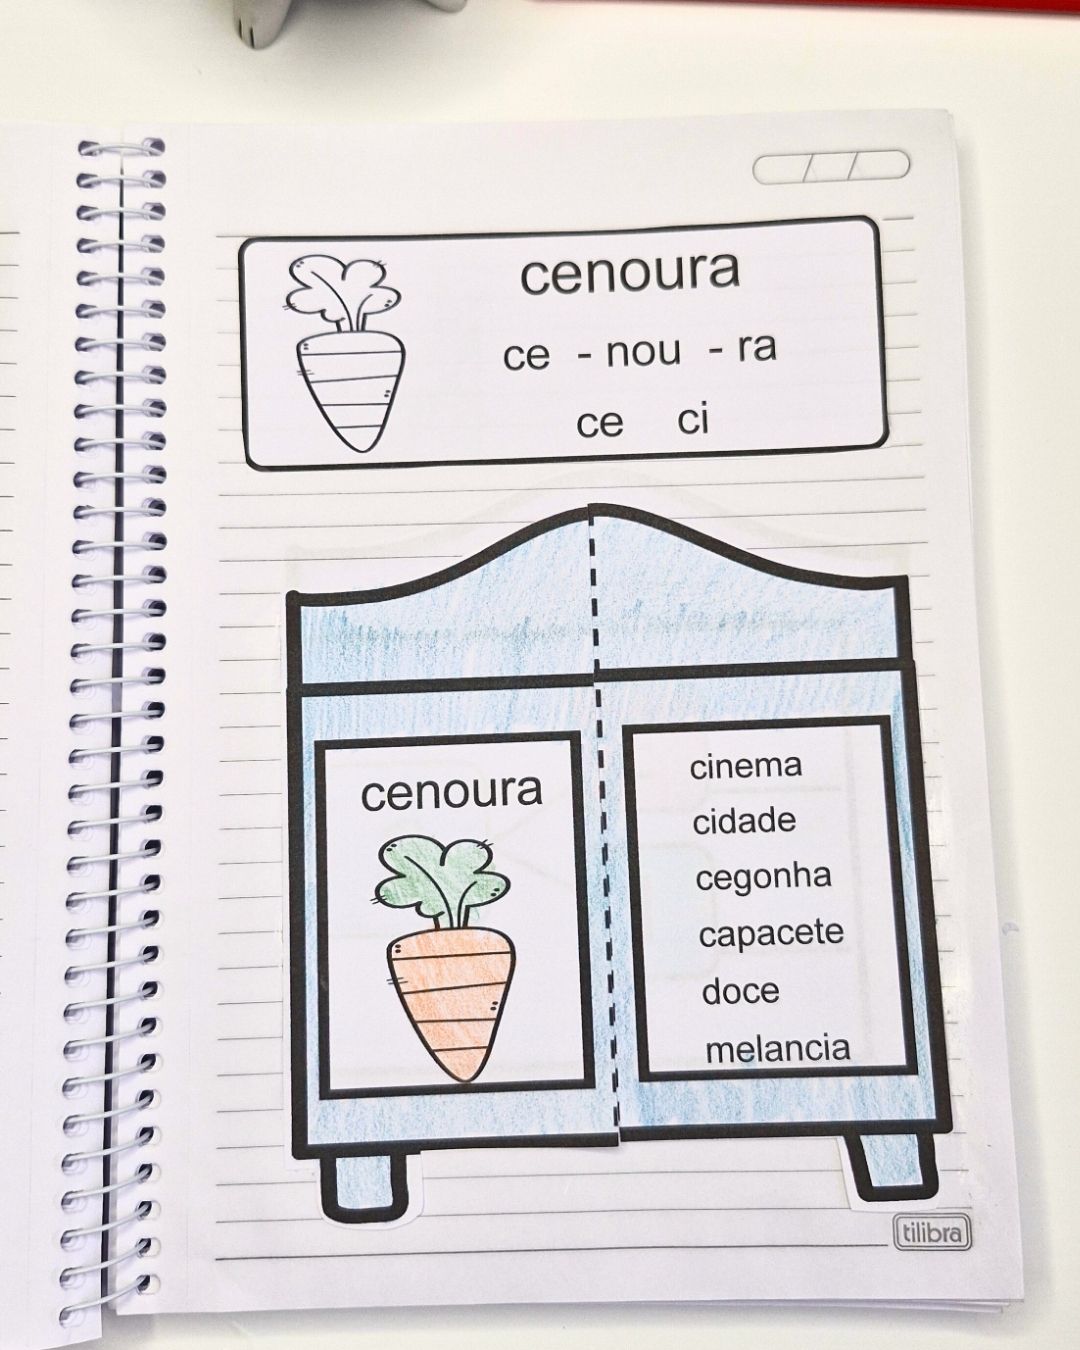 cenoura
ce - nou - ra
ce ci
cenoura
cinema
cidade
cegonha
capacete
doce
melancia
tilibra